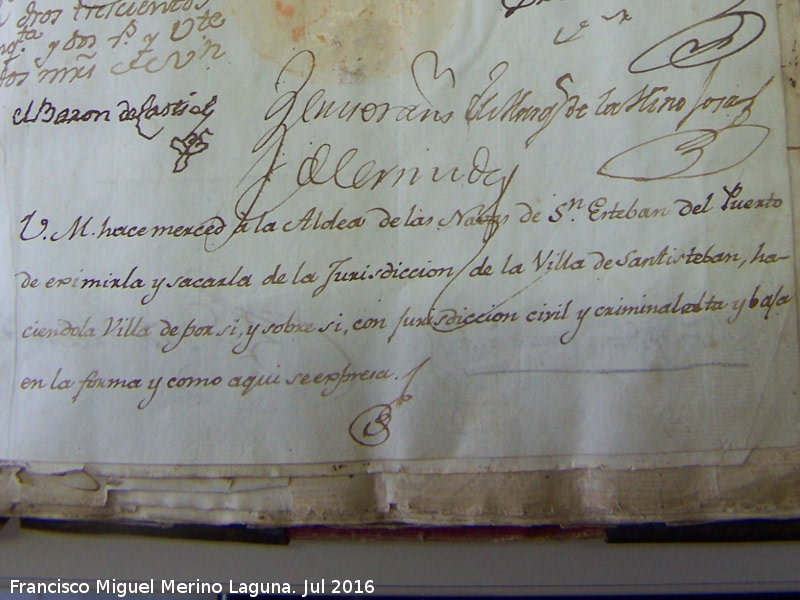 dros trescientos
y dos rs. y Vte
dos mrs de Vn
el Baron de
de la Hinojosa
V. M. hace merced á la Aldea de las Navas de Sn. Esteban del Puerto
de eximirla y sacarla de la Jurisdiccion de la Villa de Santisteban, ha-
ciendola Villa de por si, y sobre si, con jurisdiccion civil y criminal alta y baja
en la forma y como aqui se expresa.
Francisco Miguel Merino Laguna. Jul 2016